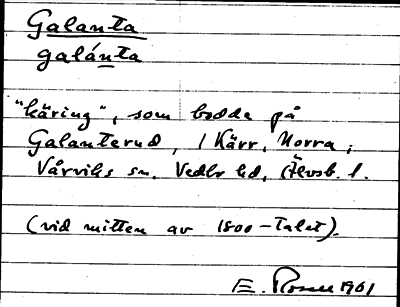 Galanta
galánta
"käring", som bodde på
Galanterud, i Kärr, Norra,
Vårviks sn. Vedbo hd, Älvsb. l.
(vid mitten av 1800-talet).
E. Rosen 1901